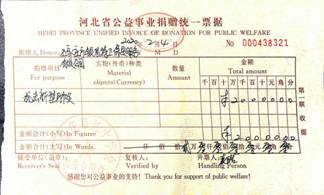 河北省公益事业捐赠统一票据
HEBEI PROVINCE UNIFIED INVOICE OF DONATION FOR PUBLIC WELFARE
捐赠人Donor 2020年2月4日
Y M D
No 000438321
捐赠项目 For purpose
实物(外币)种类 Material objects(Currency)
数量 Amount
金额 Total amount
千百十万千百十元角分
¥2000000
金额合计(小写)In Figures ¥2000000
金额合计(大写)In Words 仟 佰 拾 贰万零仟零佰零拾零元零角零分
接受单位(盖章) Receiver's Seal
复核人: Verified by
开票人: Handling Person
感谢您对公益事业的支持! Thank you for support of public welfare!
第一联 收据